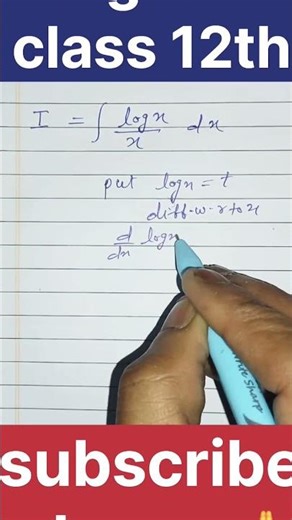 class 12th
I = ∫ logx/x dx
put logx = t
diff·w·r to x
d/dx logx
subscribe